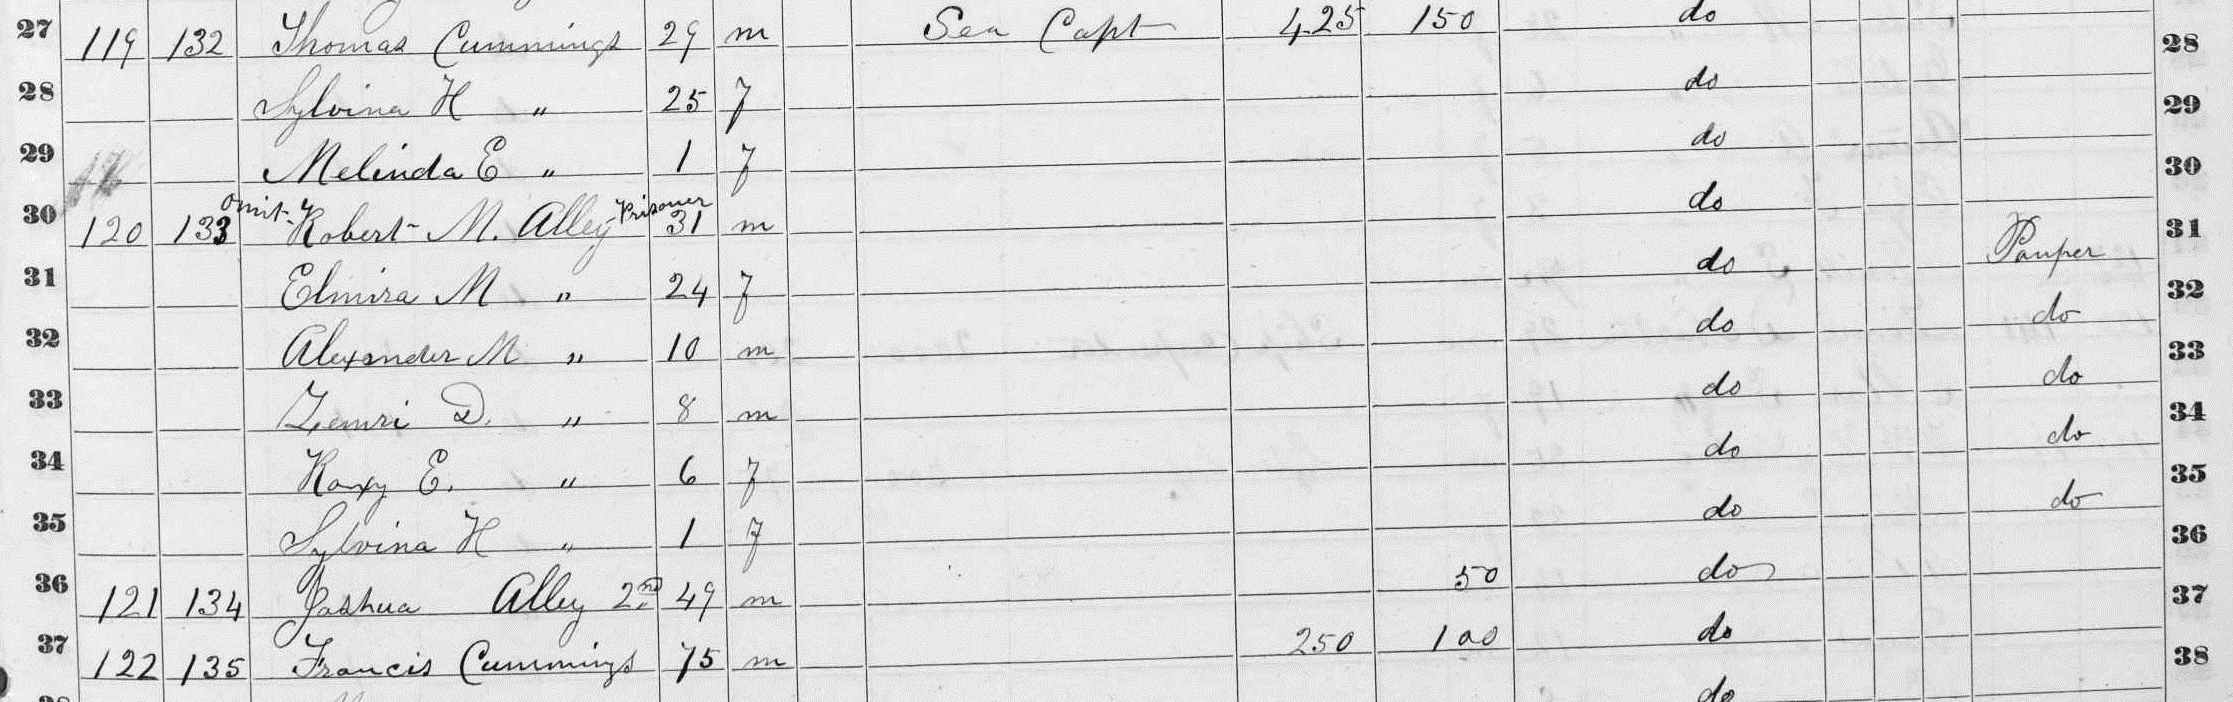 27 119 132 Thomas Cummings 29 m Sea Capt 425 150 do 28
28 Sylvina H " 25 f do 29
29 Melinda E " 1 f do 30
omit Prisoner
30 120 133 Robert M. Alley 31 m do 31
31 Elmira M " 24 f do Pauper 32
32 Alexander M " 10 m do do 33
33 Zemri D. " 8 m do do 34
34 Roxy E. " 6 f do do 35
35 Sylvina H " 1 f do do 36
36 121 134 Joshua Alley 2nd 49 m 50 do 37
37 122 135 Francis Cummings 75 m 250 100 do 38
do